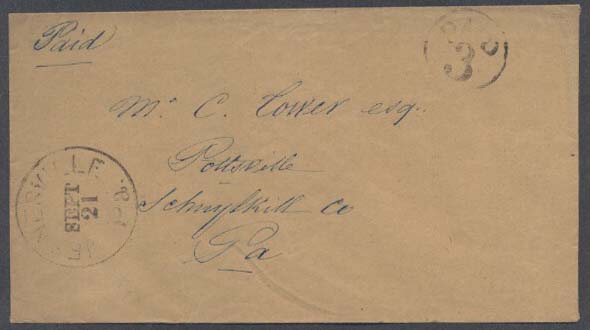 Paid
PAID
3
Mr. C. Tower esq.
Pottsville
Schuylkill Co
Pa
SEPT
21